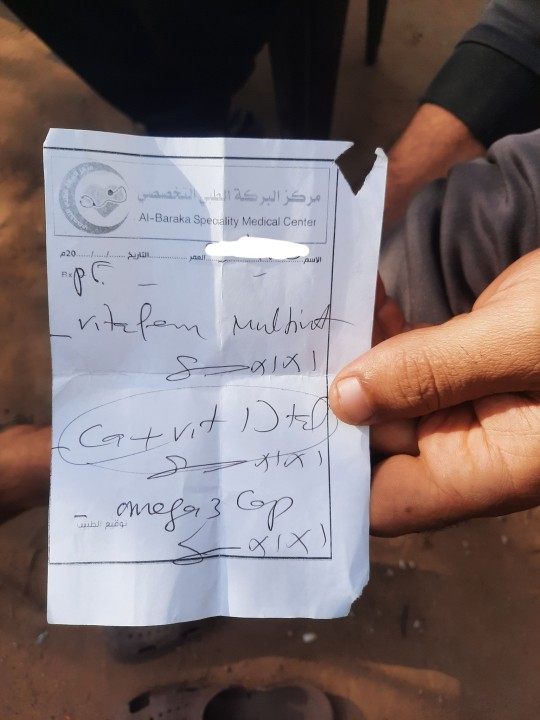 مركز البركة الطبي التخصصي
Al-Baraka Speciality Medical Center
الاسم العمر التاريخ ...../...../.....20م
R
- vitafem multivit
1x1x
Ca + vit D tab
1x1x
- omega 3 Cap
توقيع الطبيب
1x1x